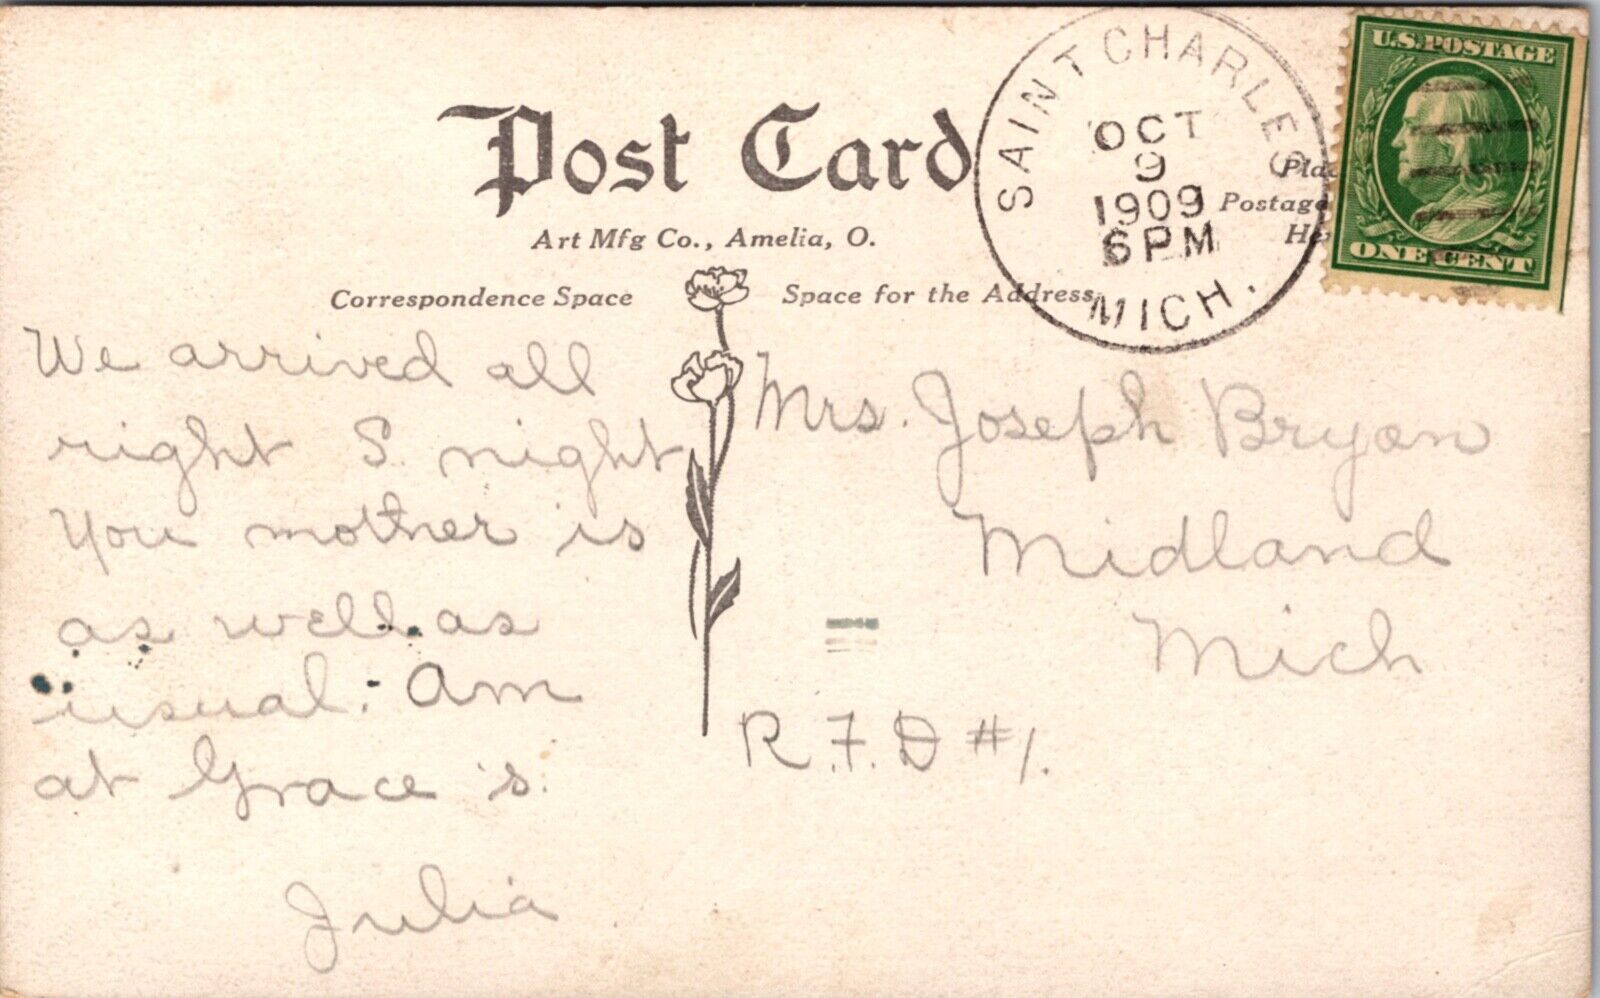 Post Card
Art Mfg Co., Amelia, O.
Correspondence Space
Space for the Address
SAINT CHARLES
OCT
9
1909
6 PM
MICH.
Postage
U.S. POSTAGE
ONE CENT
We arrived all
right S. night
You mother is
as well as
usual. Am
at Grace's.
Julia
Mrs. Joseph Bryan
Midland
Mich
R.F.D #1.